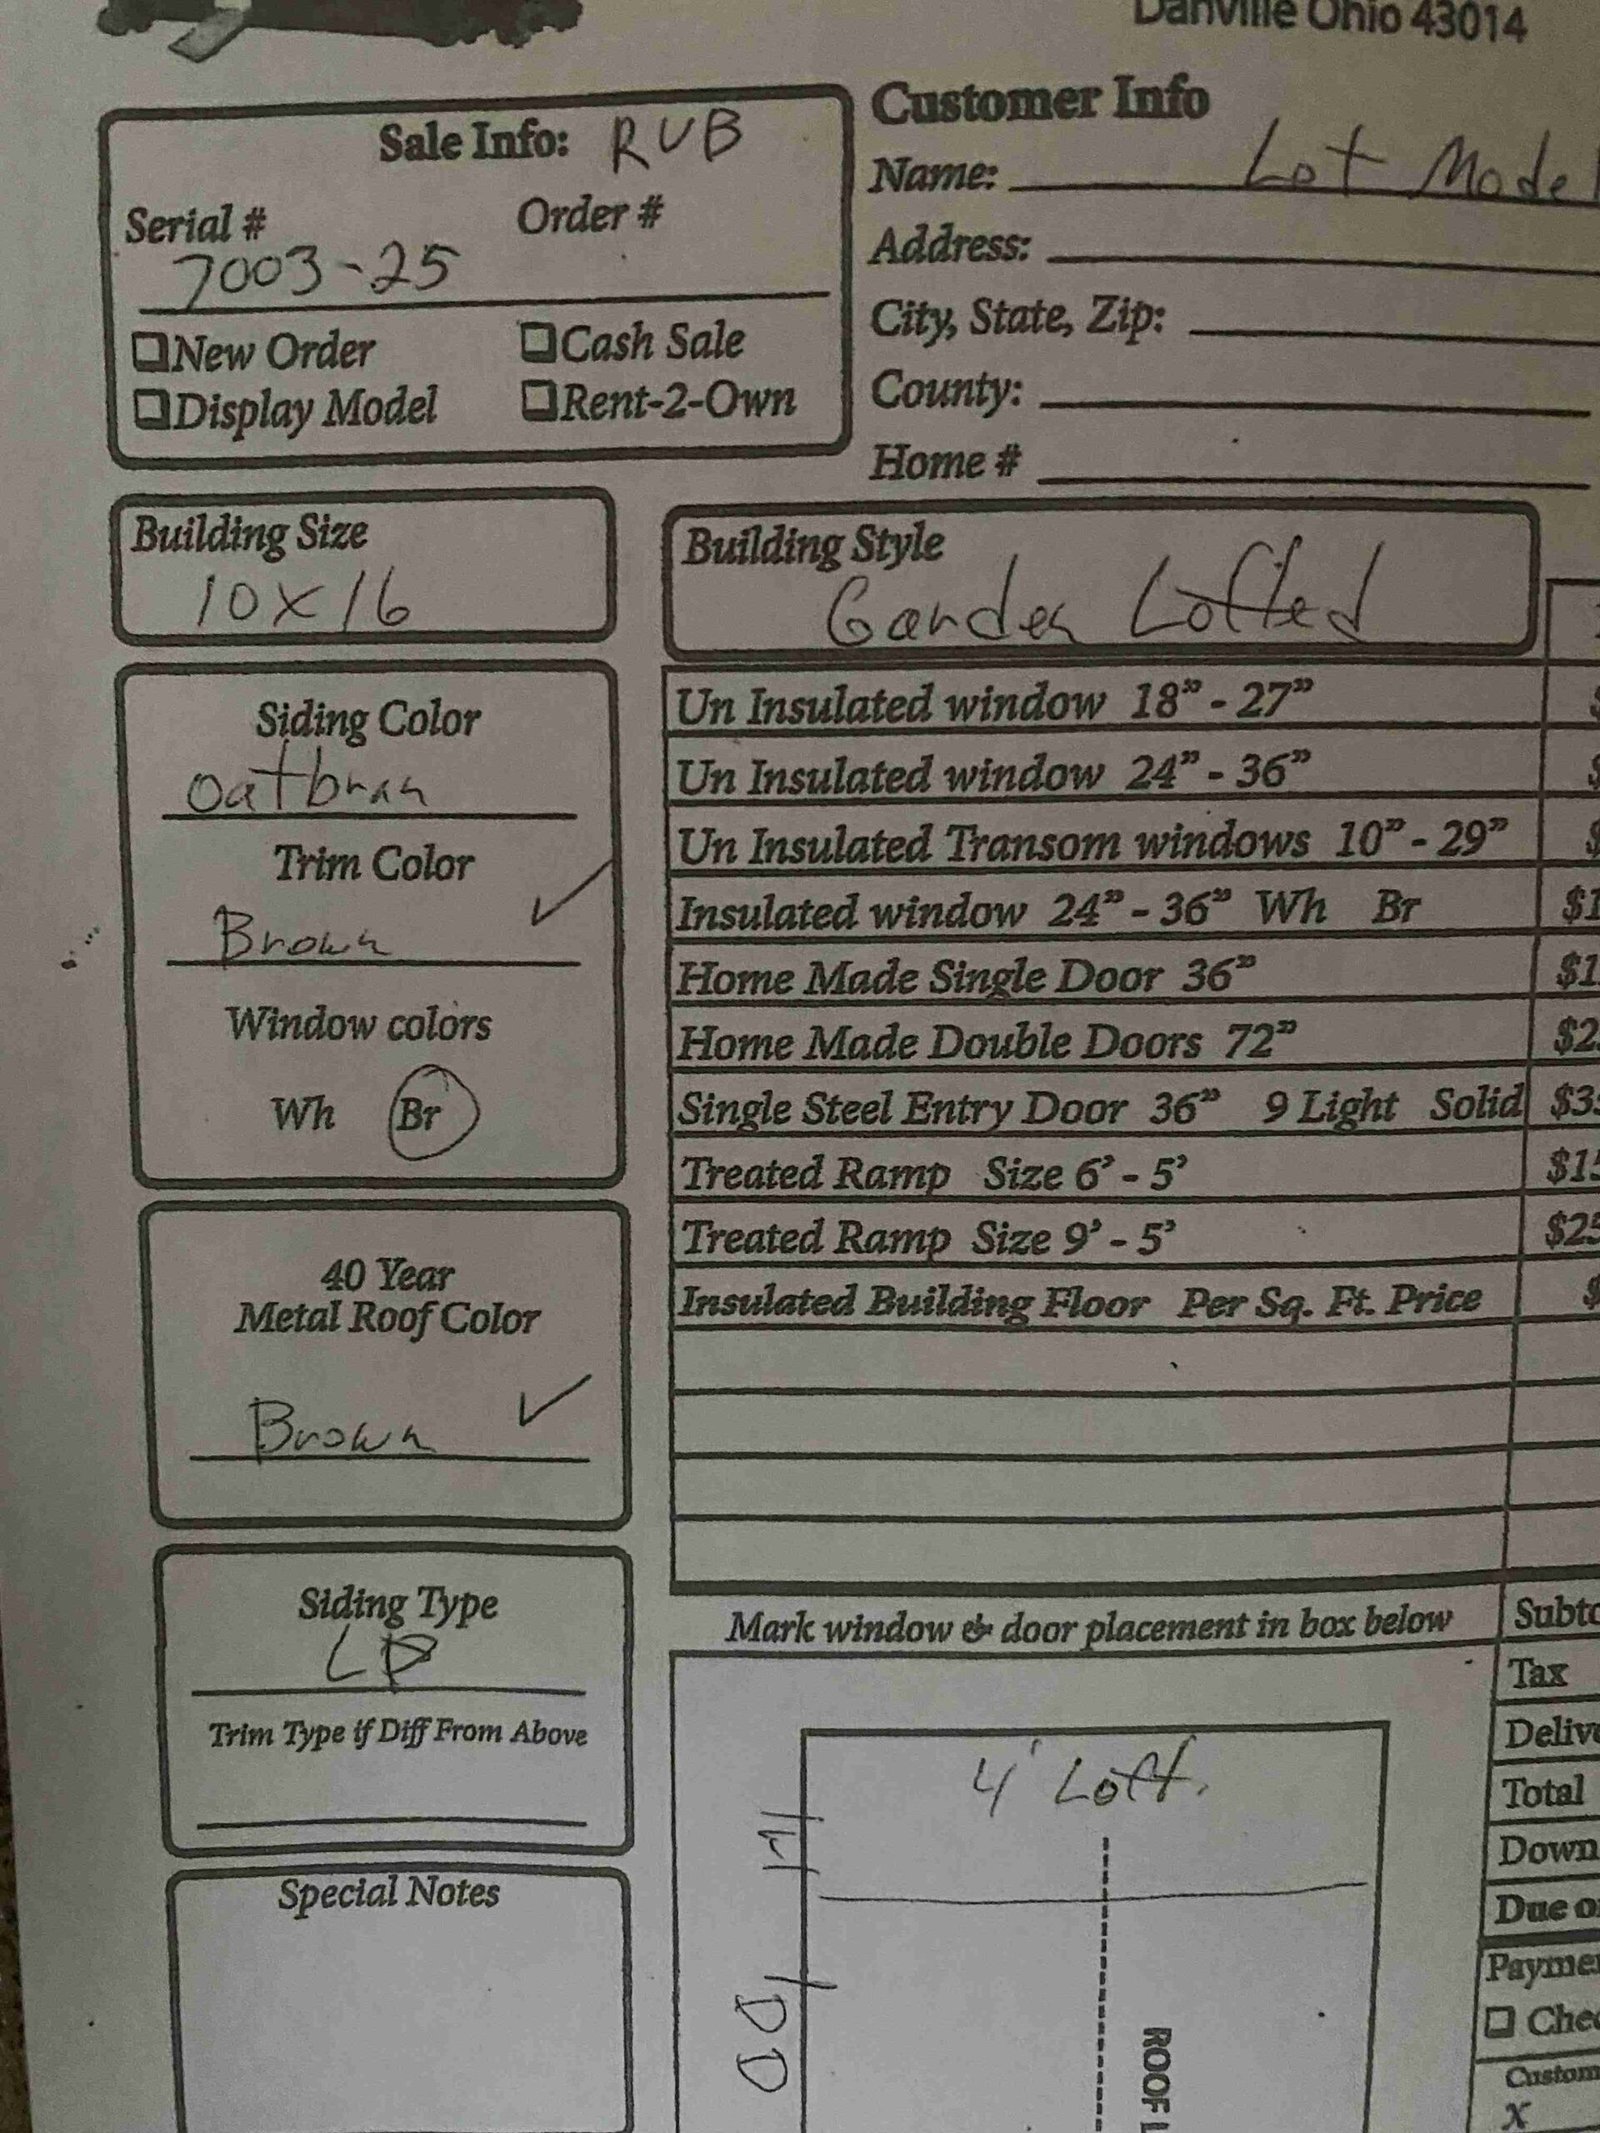 Danville Ohio 43014
Sale Info: RUB
Serial # Order #
7003-25
❑New Order ❑Cash Sale
❑Display Model ❑Rent-2-Own
Customer Info
Name: Lot Model
Address:
City, State, Zip:
County:
Home #
Building Size
10x16
Building Style
Garden Lofted
Siding Color
Oatbran
Trim Color
Brown ✓
Window colors
Wh Br
40 Year
Metal Roof Color
Brown ✓
Siding Type
LP
Trim Type if Diff From Above
Special Notes
Un Insulated window 18” - 27” $
Un Insulated window 24” - 36” $
Un Insulated Transom windows 10” - 29” $
Insulated window 24” - 36” Wh Br $1
Home Made Single Door 36” $1
Home Made Double Doors 72” $2
Single Steel Entry Door 36” 9 Light Solid $3
Treated Ramp Size 6’ - 5’ $15
Treated Ramp Size 9’ - 5’ $25
Insulated Building Floor Per Sq. Ft. Price $
Mark window & door placement in box below
4' Loft.
DD
ROOF
Subto
Tax
Delive
Total
Down
Due o
Paymen
❑ Chec
Custom
X